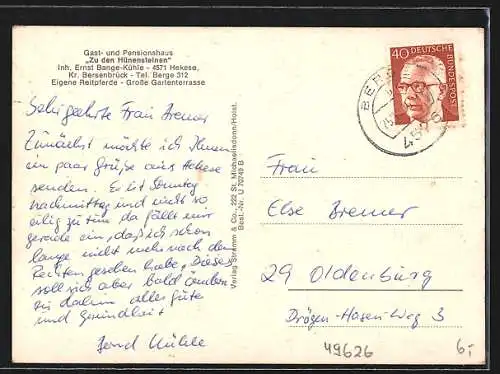 Gast- und Pensionshaus
„Zu den Hünensteinen"
Inh. Ernst Bange-Kühle - 4571 Hekese,
Kr. Bersenbrück - Tel. Berge 312
Eigene Reitpferde - Große Gartenterrasse
Sehr geehrte Frau Bremer
Zunächst möchte ich Ihnen
ein paar Grüße aus Hekese
senden. Es ist Sonntag
nachmittag und nicht so
eilig zu tun da fällt mir
gerade ein, daß ich schon
lange nicht mehr nach dem
Rechten gesehen habe, Dieses
soll sich aber bald ändern
bis dahin alles Gute
und Gesundheit
Bernd Kühle
Verlag Stramm & Co., 222 St. Michaelisdonn/Holst.
Best.-Nr. U 70749 B
40 DEUTSCHE
BUNDESPOST
BER
457
Frau
Else Bremer
29 Oldenburg
Drögen-Hasen-Weg 3
49626
6,-